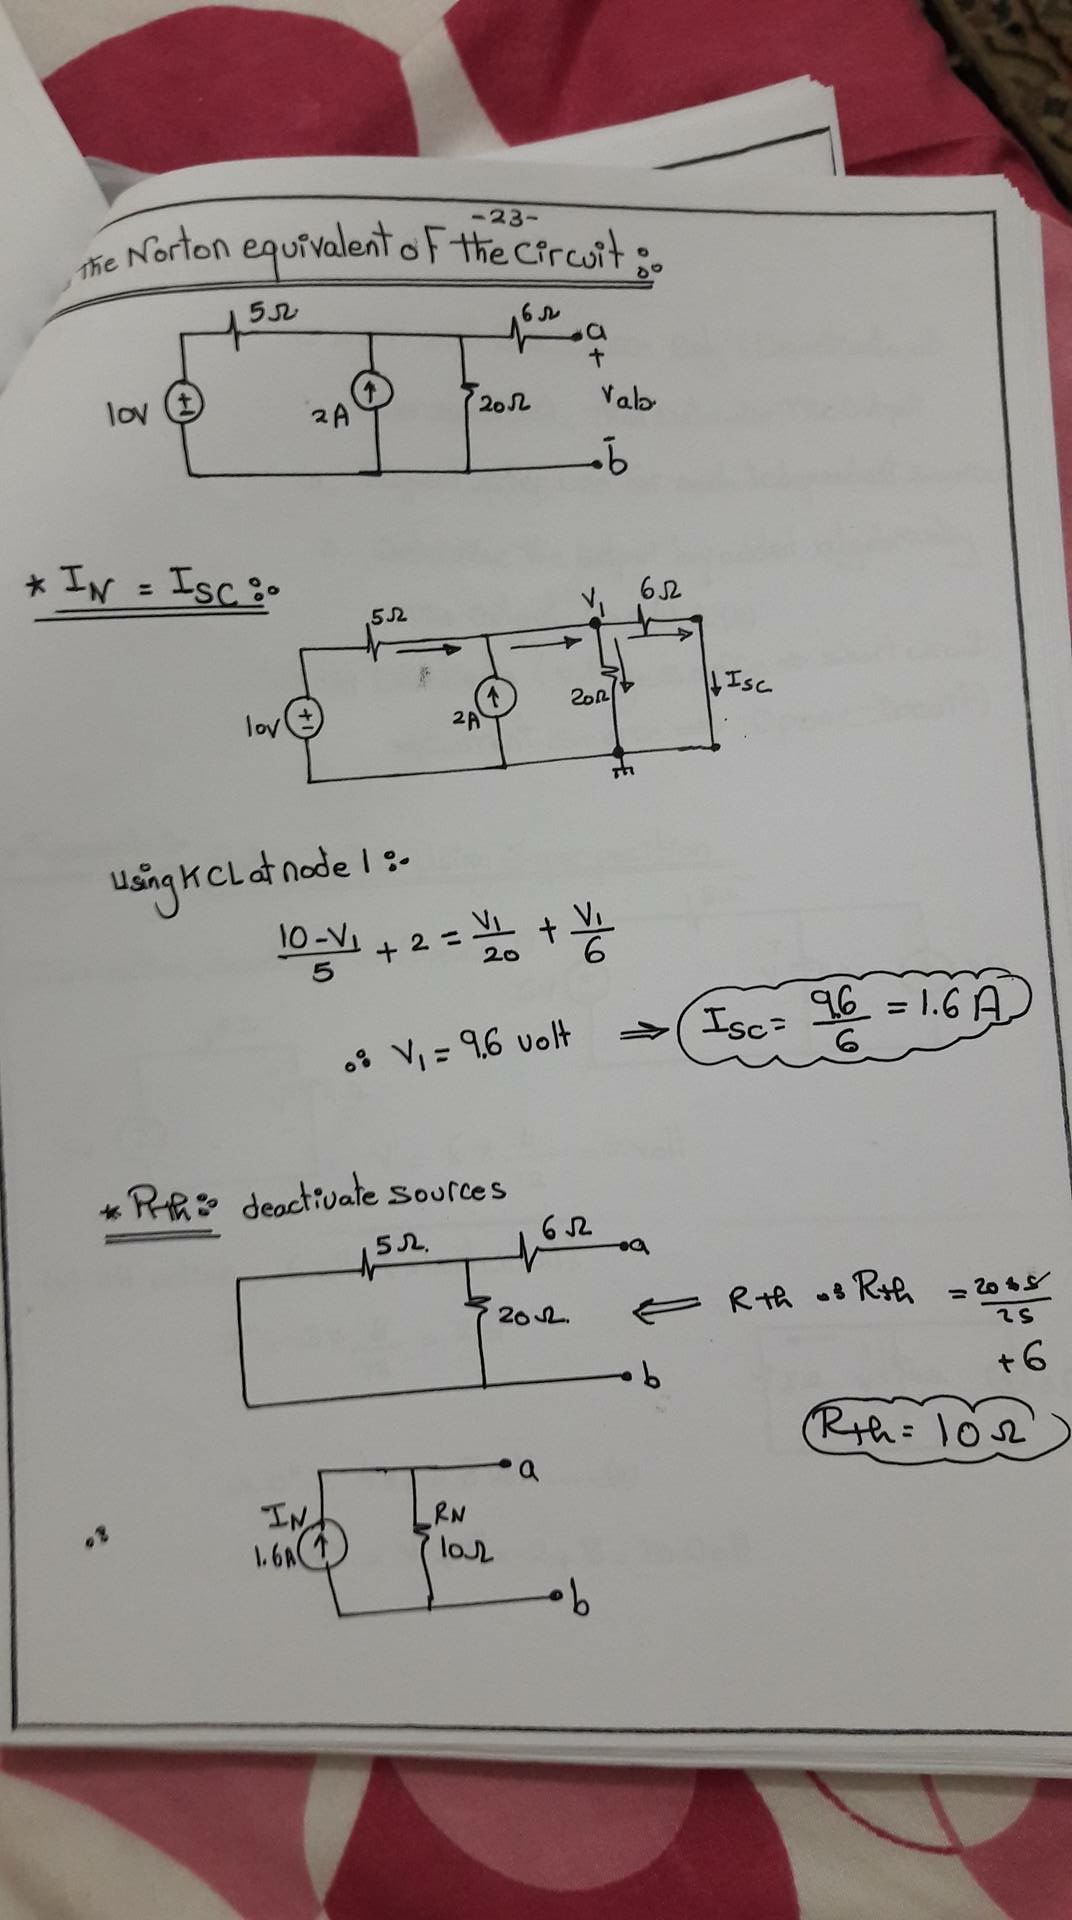 -23-
the Norton equivalent of the circuit :
5Ω
6Ω
a
+
10V
±
2A
20Ω
Vab
-
b
* IN = ISC :-
5Ω
V1
6Ω
10V
±
2A
20Ω
ISC
Using KCL at node 1 :-
10-V1/5 + 2 = V1/20 + V1/6
∴ V1 = 9.6 volt ⇒ ISC = 9.6/6 = 1.6 A
* Rth :- deactivate sources
5Ω.
6Ω
a
20Ω.
⇐ Rth ∴ Rth = 20*5/25
+6
b
Rth = 10Ω
a
∴
IN
1.6A
RN
10Ω
b